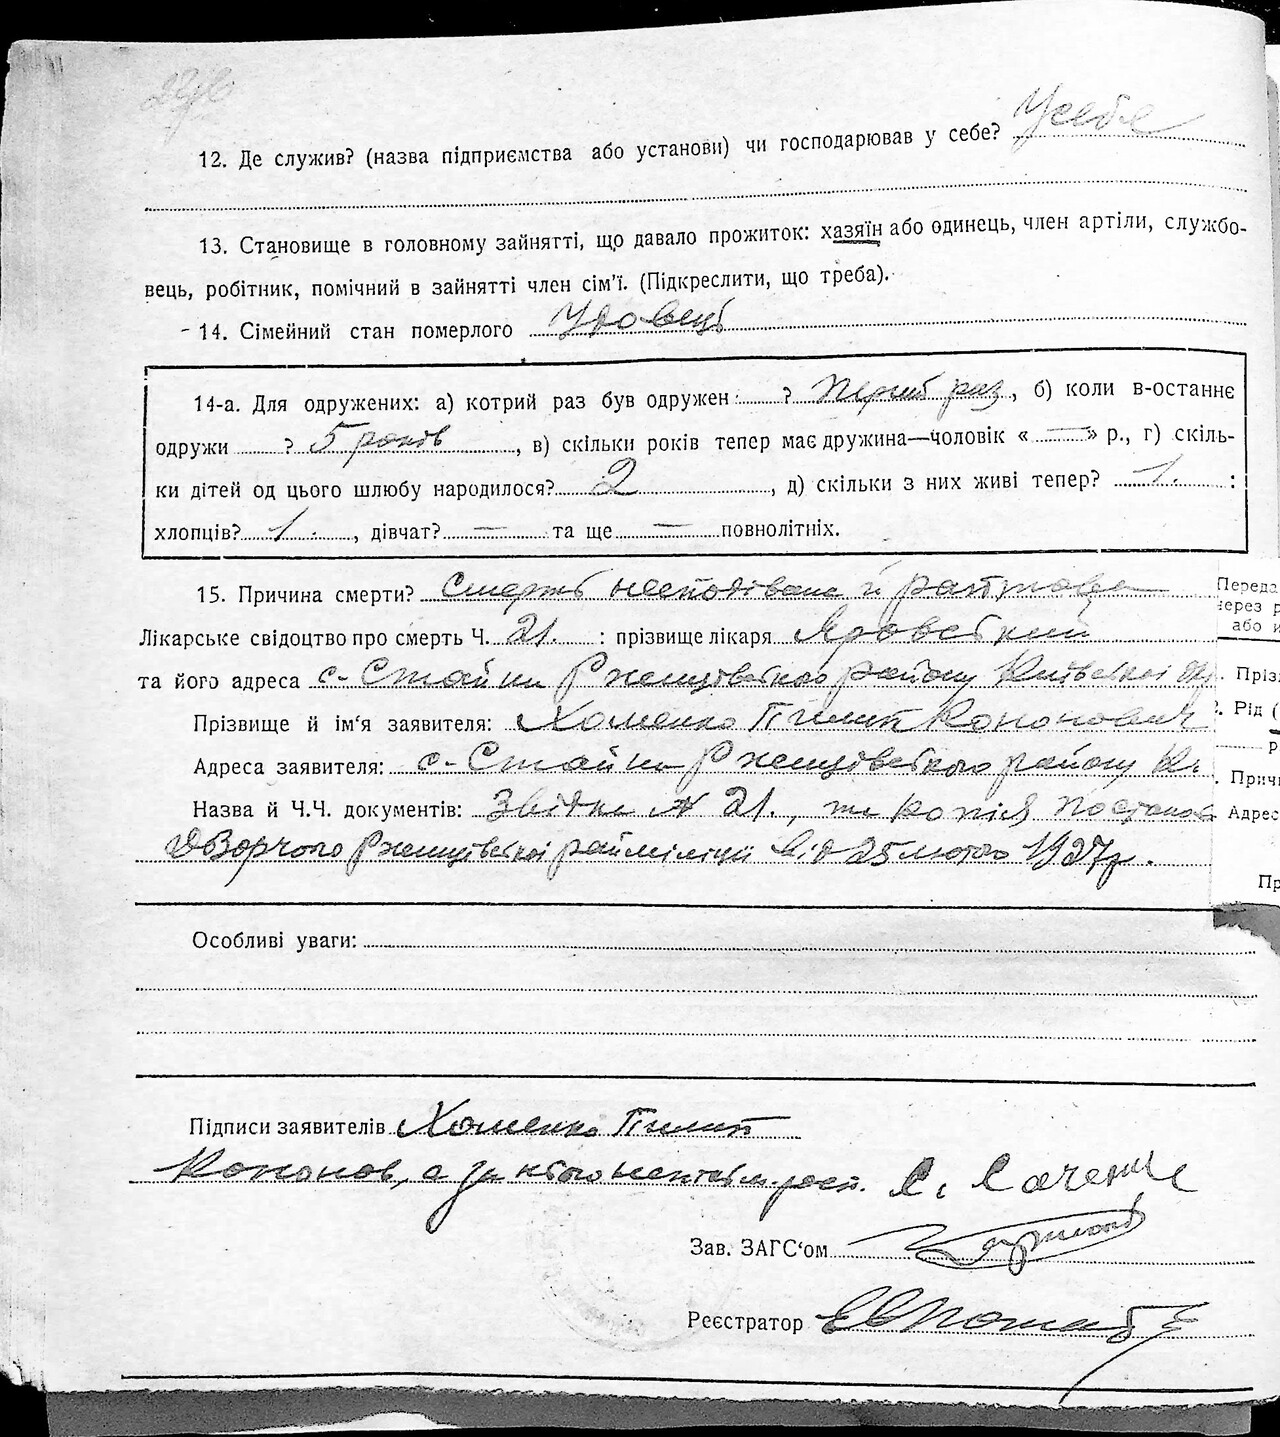 12. Де служив? (назва підприємства або установи) чи господарював у себе? У себе
13. Становище в головному зайнятті, що давало прожиток: хазяїн або одинець, член артіли, службо-
вець, робітник, помічний в зайнятті член сім'ї. (Підкреслити, що треба).
14. Сімейний стан померлого Удовець
14-а. Для одружених: а) котрий раз був одружен ? Перший раз, б) коли в-останнє
одружи ? 5 років, в) скільки років тепер має дружина—чоловік « — » р., г) скіль-
ки дітей од цього шлюбу народилося? 2, д) скільки з них живі тепер? 1. :
хлопців? 1., дівчат? — та ще — повнолітніх.
15. Причина смерти? Смерть несподівана й раптова
Лікарське свідоцтво про смерть Ч. 21. : прізвище лікаря Яровський
та його адреса с. Стайки Ржищівського району Київської
Прізвище й ім'я заявителя: Хоменко Пилип Кононович
Адреса заявителя: с. Стайки Ржищівського району
Назва й Ч.Ч. документів: Звідка № 21., та копія
Ржищівської райміліції від 25 лютого 1927 р.
Особливі уваги:
Підписи заявителів Хоменко Пилип
Кононов, а за його
Зав. ЗАГС'ом
Реєстратор
Переда
через р
або и
Прізв
Рід (
Р
Причи
Адрес
Пр